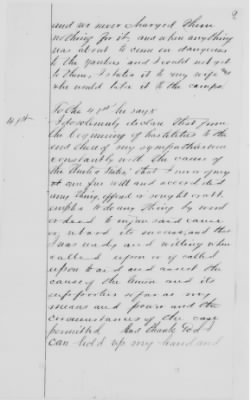 9
and we never charged them
nothing for it and when anything
was about to come on dangerous
to the yankees and I could not get
to them, I state it to my wife and
she would take it to the camps
To the 41st he says
41st
I solemnly declare that from
the beginning of hostilities to the
end there of my sympathies were
constantly with the cause of
the United States that I never of my
own free will and accord did
any thing, offered or sought or att-
empted to do any thing by word
or deed to injure said cause
or retard its success, and that
I was ready and willing when
called upon or if called
upon to aid and assist the
cause of the Union and its
supporters so far as my
means and power and the
circumstances of the case
permitted and thank God I
can hold up my hand and